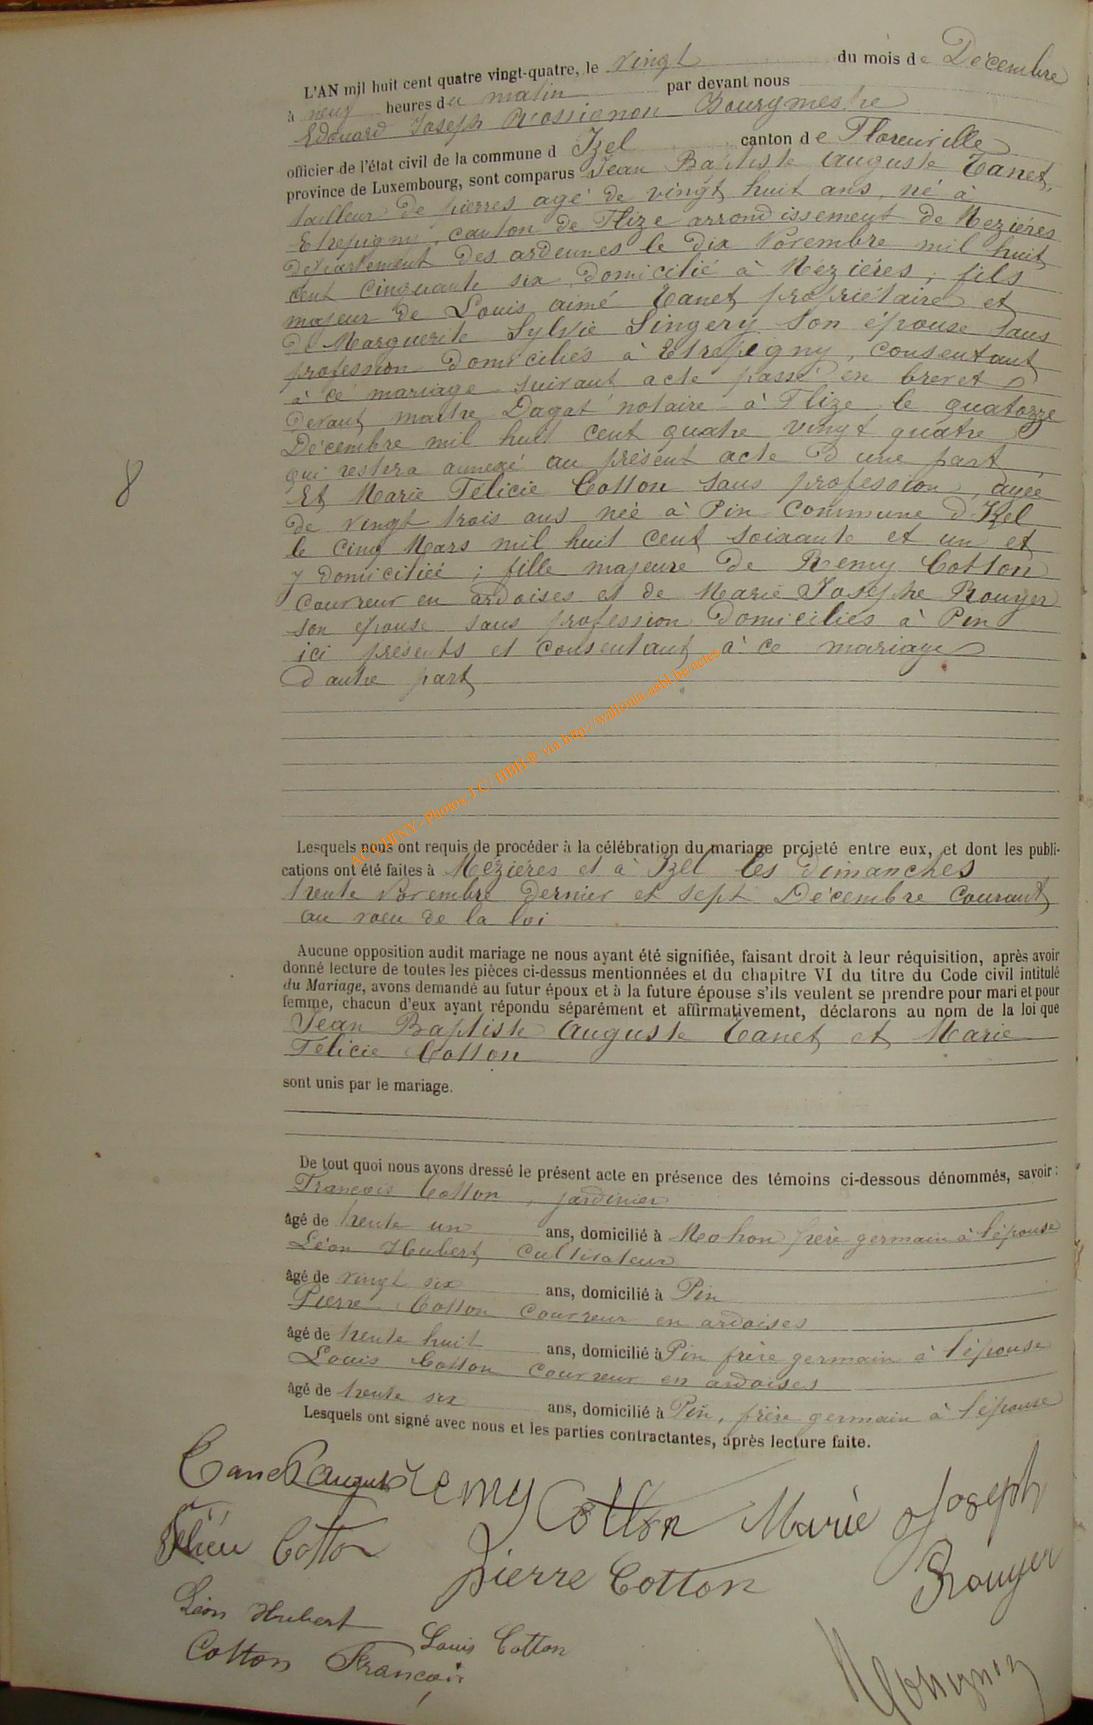 L'AN mil huit cent quatre vingt-quatre, le vingt du mois de Décembre
à neuf heures du matin par devant nous
Edouard Joseph Rossignon Bourgmestre
officier de l'état civil de la commune d Izel canton de Florenville
province de Luxembourg, sont comparus Jean Baptiste Auguste Canet,
tailleur de pierres agé de vingt huit ans, né à
Etrepigny, canton de Flize arrondissement de Mézières
département des ardennes le dix Novembre mil huit
cent cinquante six domicilié à Mézières, fils
majeur de Louis aimé Canet propriétaire et
de Marguerite Sylvie Lingery son épouse sans
profession domiciliés à Etrepigny, consentant
à ce mariage suivant acte passé en brevet
devant maitre Dagat notaire à Flize le quatorze
Décembre mil huit cent quatre vingt quatre
qui restera annexé au présent acte d'une part,
Et Marie Félicie Cotton sans profession, agée
de vingt trois ans née à Pin commune d'Izel
le cinq Mars mil huit cent soixante et un et
y domiciliée ; fille majeure de Remy Cotton
couvreur en ardoises et de Marie Josephe Rouyer
son épouse sans profession domiciliés à Pin
ici présents et consentant à ce mariage
d'autre part
8
via http://wallonia.asbl.be/actes
Lesquels nous ont requis de procéder à la célébration du mariage projeté entre eux, et dont les publi-
cations ont été faites à Mézières et à Izel les dimanches
trente Novembre dernier et sept Décembre courant
au voeu de la loi
Aucune opposition audit mariage ne nous ayant été signifiée, faisant droit à leur réquisition, après avoir
donné lecture de toutes les pièces ci-dessus mentionnées et du chapitre VI du titre du Code civil intitulé
du Mariage, avons demandé au futur époux et à la future épouse s'ils veulent se prendre pour mari et pour
femme, chacun d'eux ayant répondu séparément et affirmativement, déclarons au nom de la loi que
Jean Baptiste Auguste Canet et Marie
Félicie Cotton
sont unis par le mariage.
De tout quoi nous avons dressé le présent acte en présence des témoins ci-dessous dénommés, savoir :
François Cotton, jardinier
âgé de trente un ans, domicilié à Mohon frère germain à l'épouse
Léon Hubert cultivateur
âgé de vingt six ans, domicilié à Pin
Pierre Cotton couvreur en ardoises
âgé de trente huit ans, domicilié à Pin frère germain à l'épouse
Louis Cotton couvreur en ardoises
âgé de trente six ans, domicilié à Pin, frère germain à l'épouse
Lesquels ont signé avec nous et les parties contractantes, après lecture faite.
Canet auguste Remy Cotton Marie Joseph
Rouyer
Cotton Pierre Cotton
Léon Hubert Louis Cotton
Cotton François
Rossignon